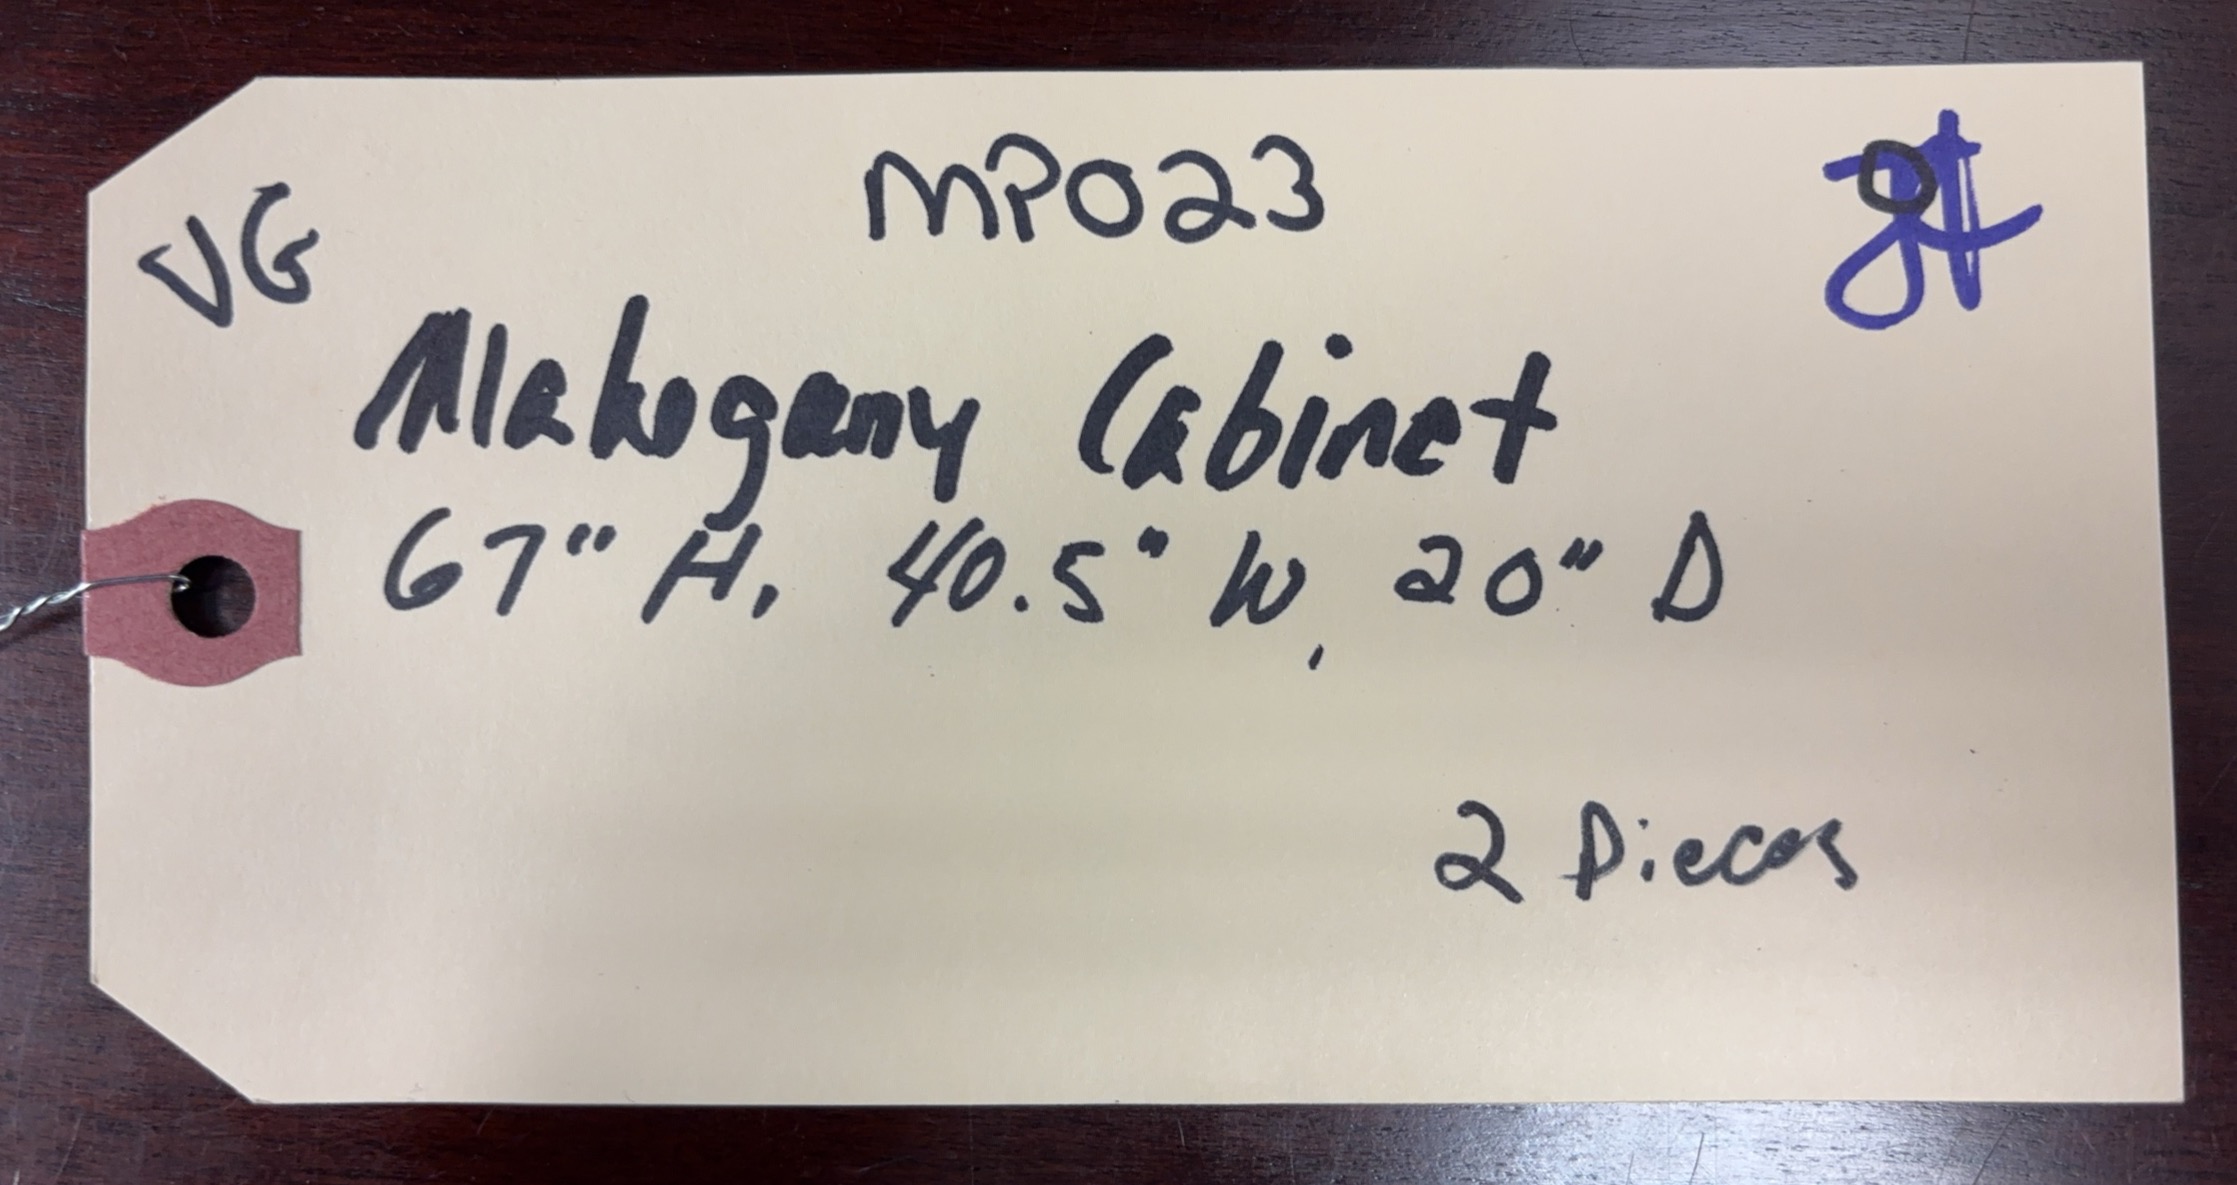 MP023
VG
Mahogany Cabinet
67" H, 40.5" W, 20" D
2 Pieces